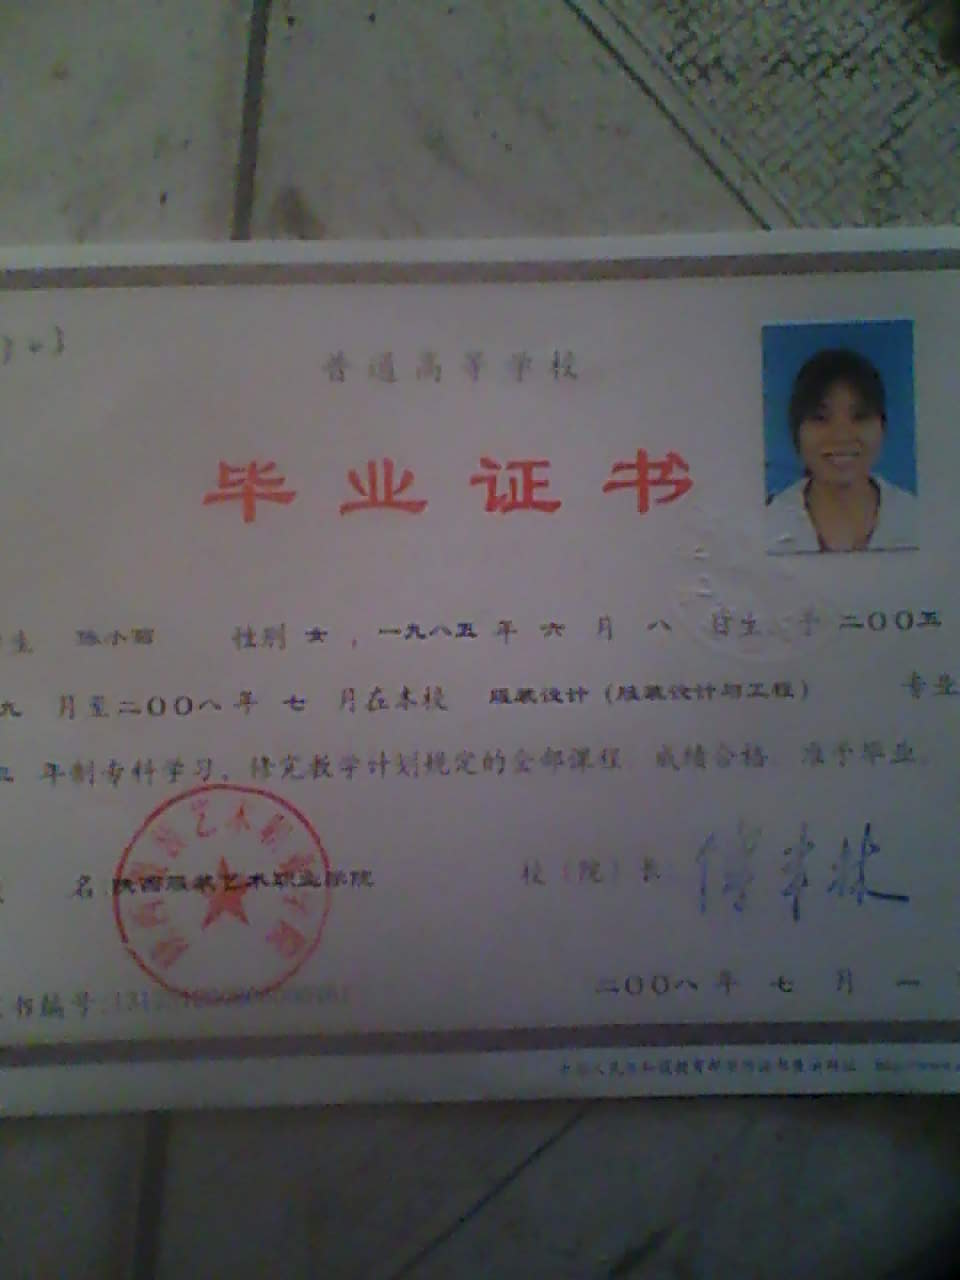 普通高等学校
毕业证书
生 陈小丽 性别 女 ，一九八五 年 六 月 八 日生，于 二〇〇五
九 月至二〇〇八年 七 月在本校 服装设计（服装设计与工程） 专业
年制专科学习，修完教学计划规定的全部课程，成绩合格，准予毕业。
名：陕西服装艺术职业学院 校（院）长：
书编号：
二〇〇八 年 七 月 一
中华人民共和国教育部学历证书查询网址 http://www.